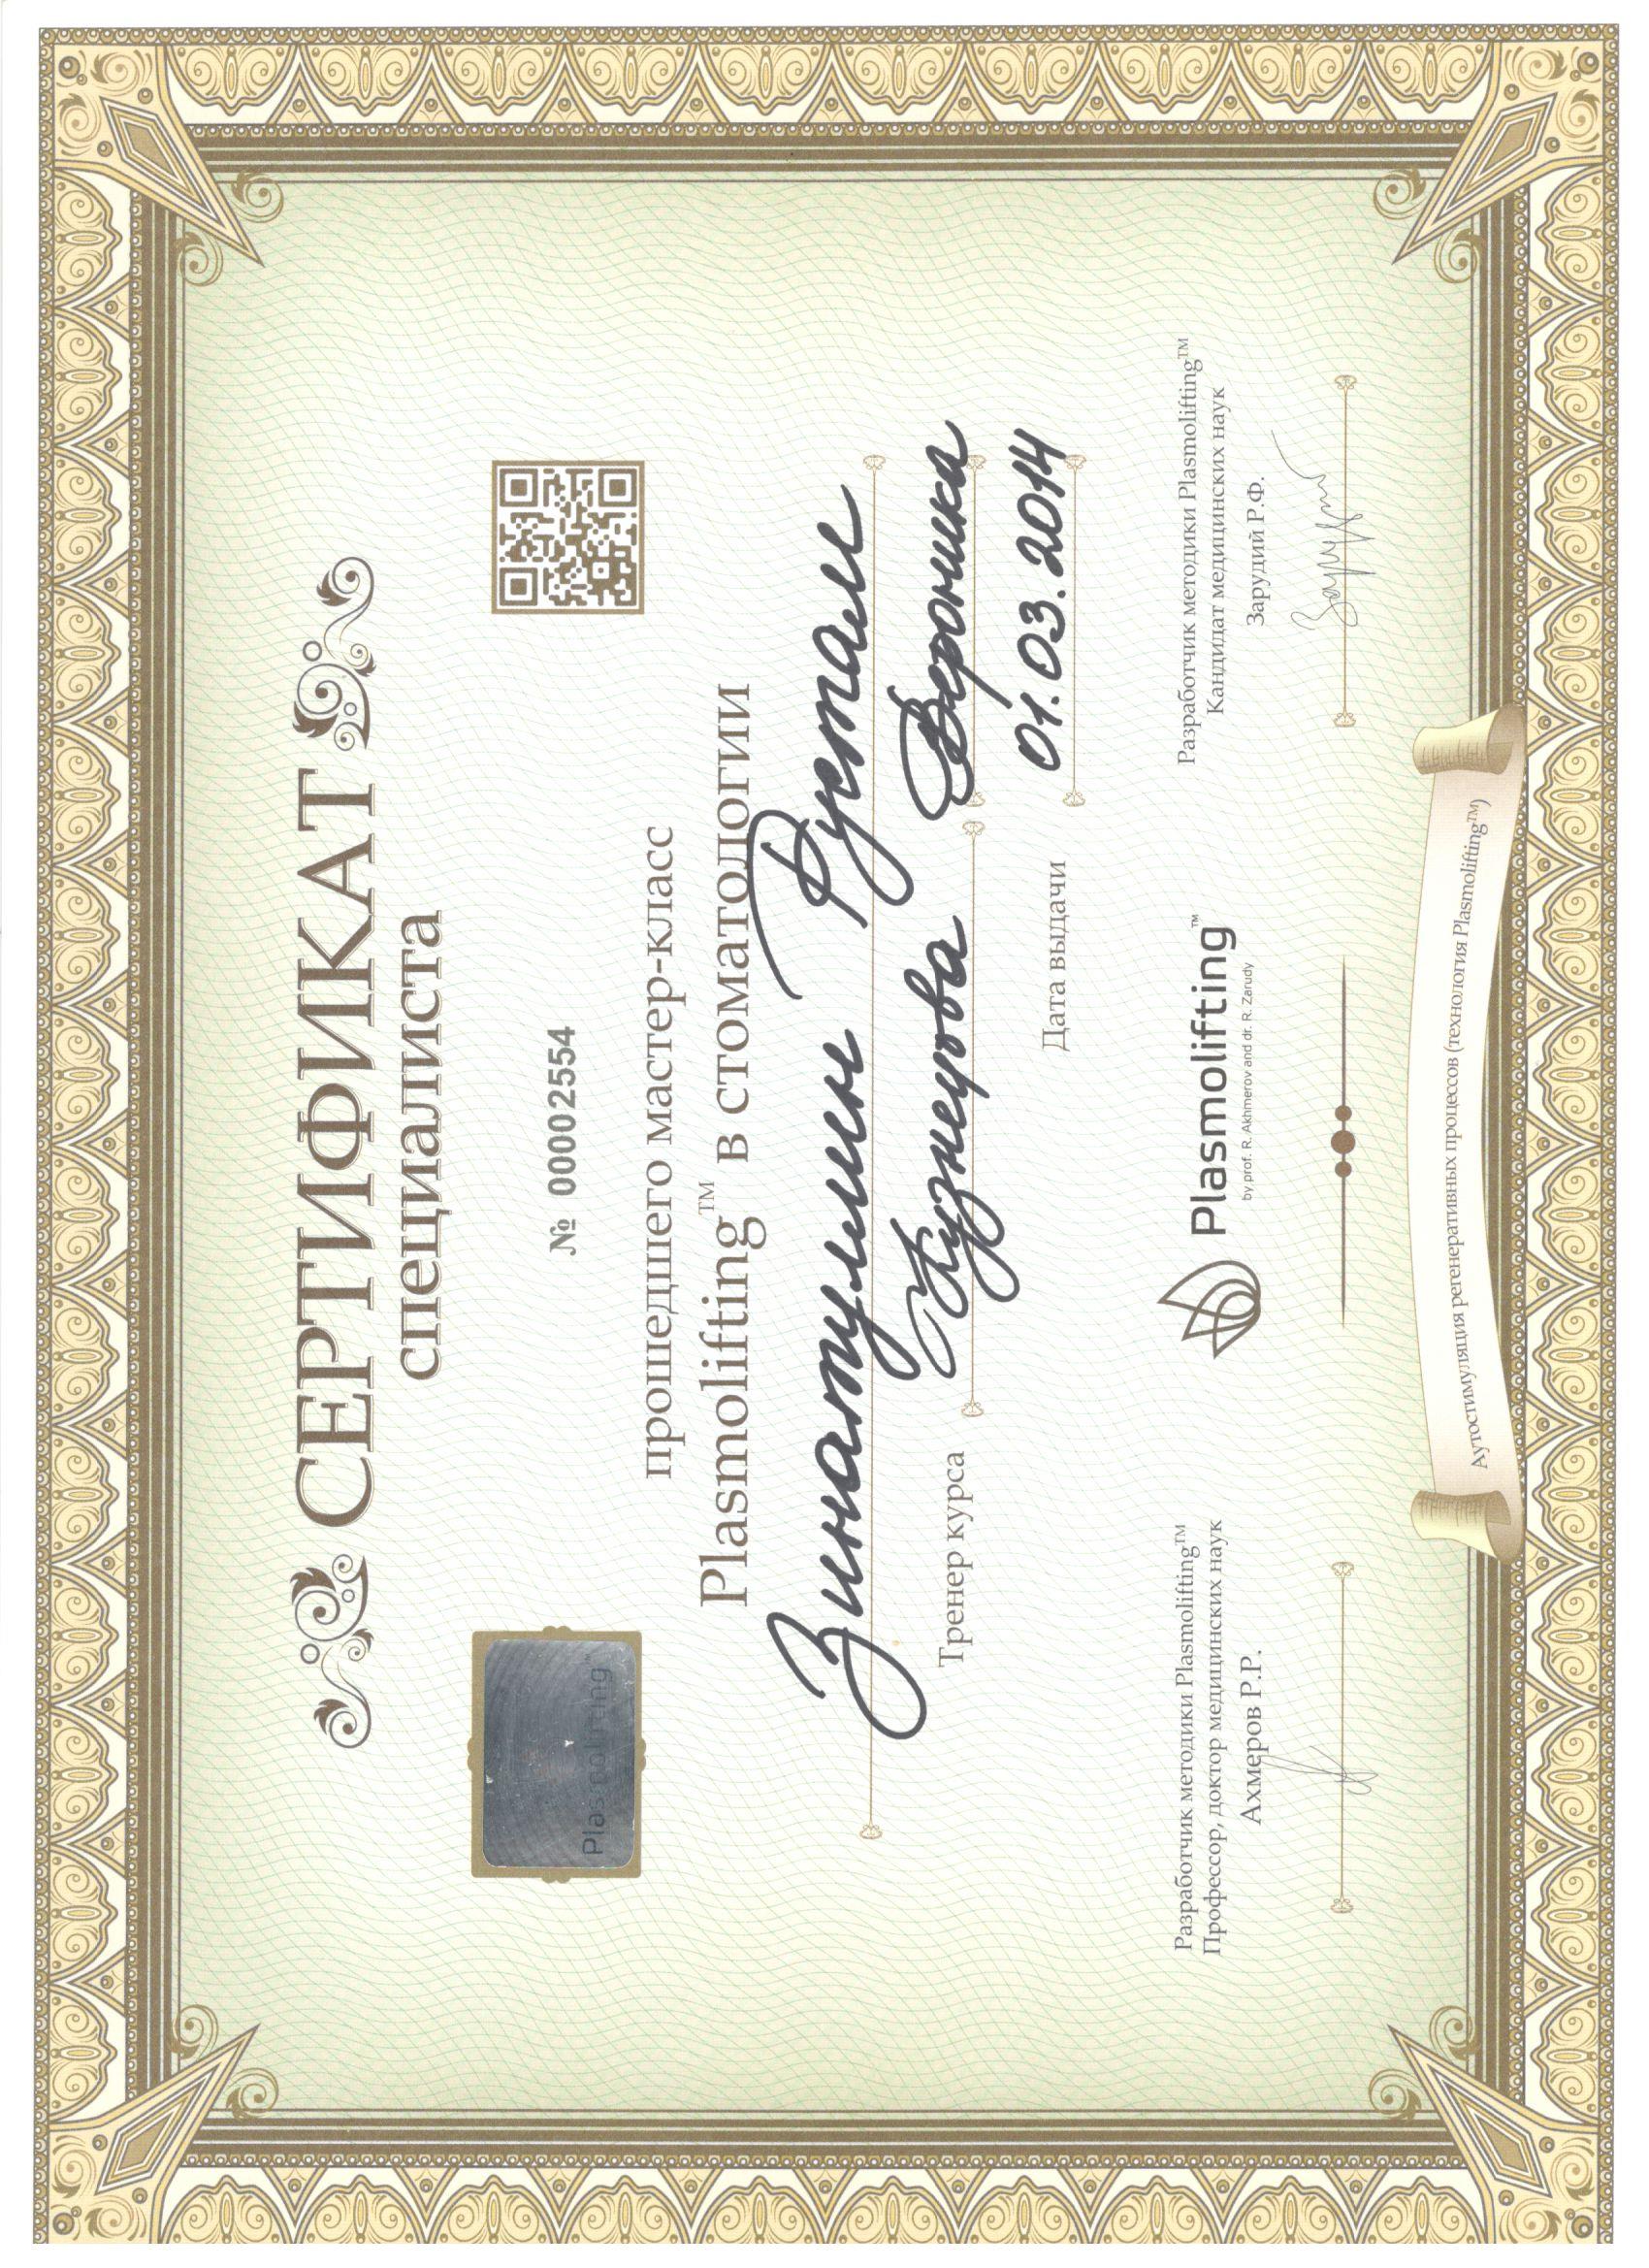 СЕРТИФИКАТ
специалиста
Plasmolifting™
№ 00002554
прошедшего мастер-класс
Plasmolifting™ в стоматологии
Зинатулин Рустам
Тренер курса Кузнецова Вероника
Дата выдачи 01.03.2014
Разработчик методики Plasmolifting™
Профессор, доктор медицинских наук
Ахмеров Р.Р.
Plasmolifting™
by prof. R. Akhmerov and dr. R. Zarudy
Разработчик методики Plasmolifting™
Кандидат медицинских наук
Зарудий Р.Ф.
Аутостимуляция регенеративных процессов (технология Plasmolifting™)